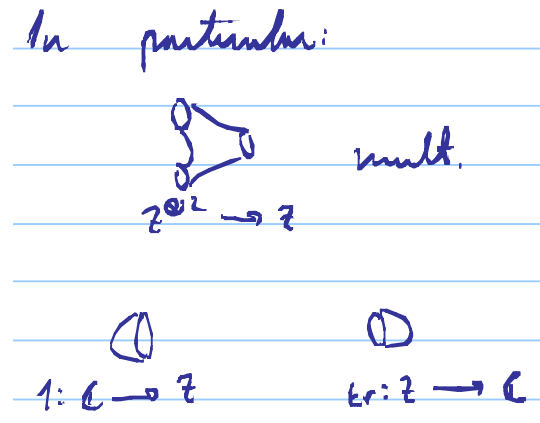 In particular:
mult.
Z^{⊗2} → Z
1: ℂ → Z
tr: Z → ℂ